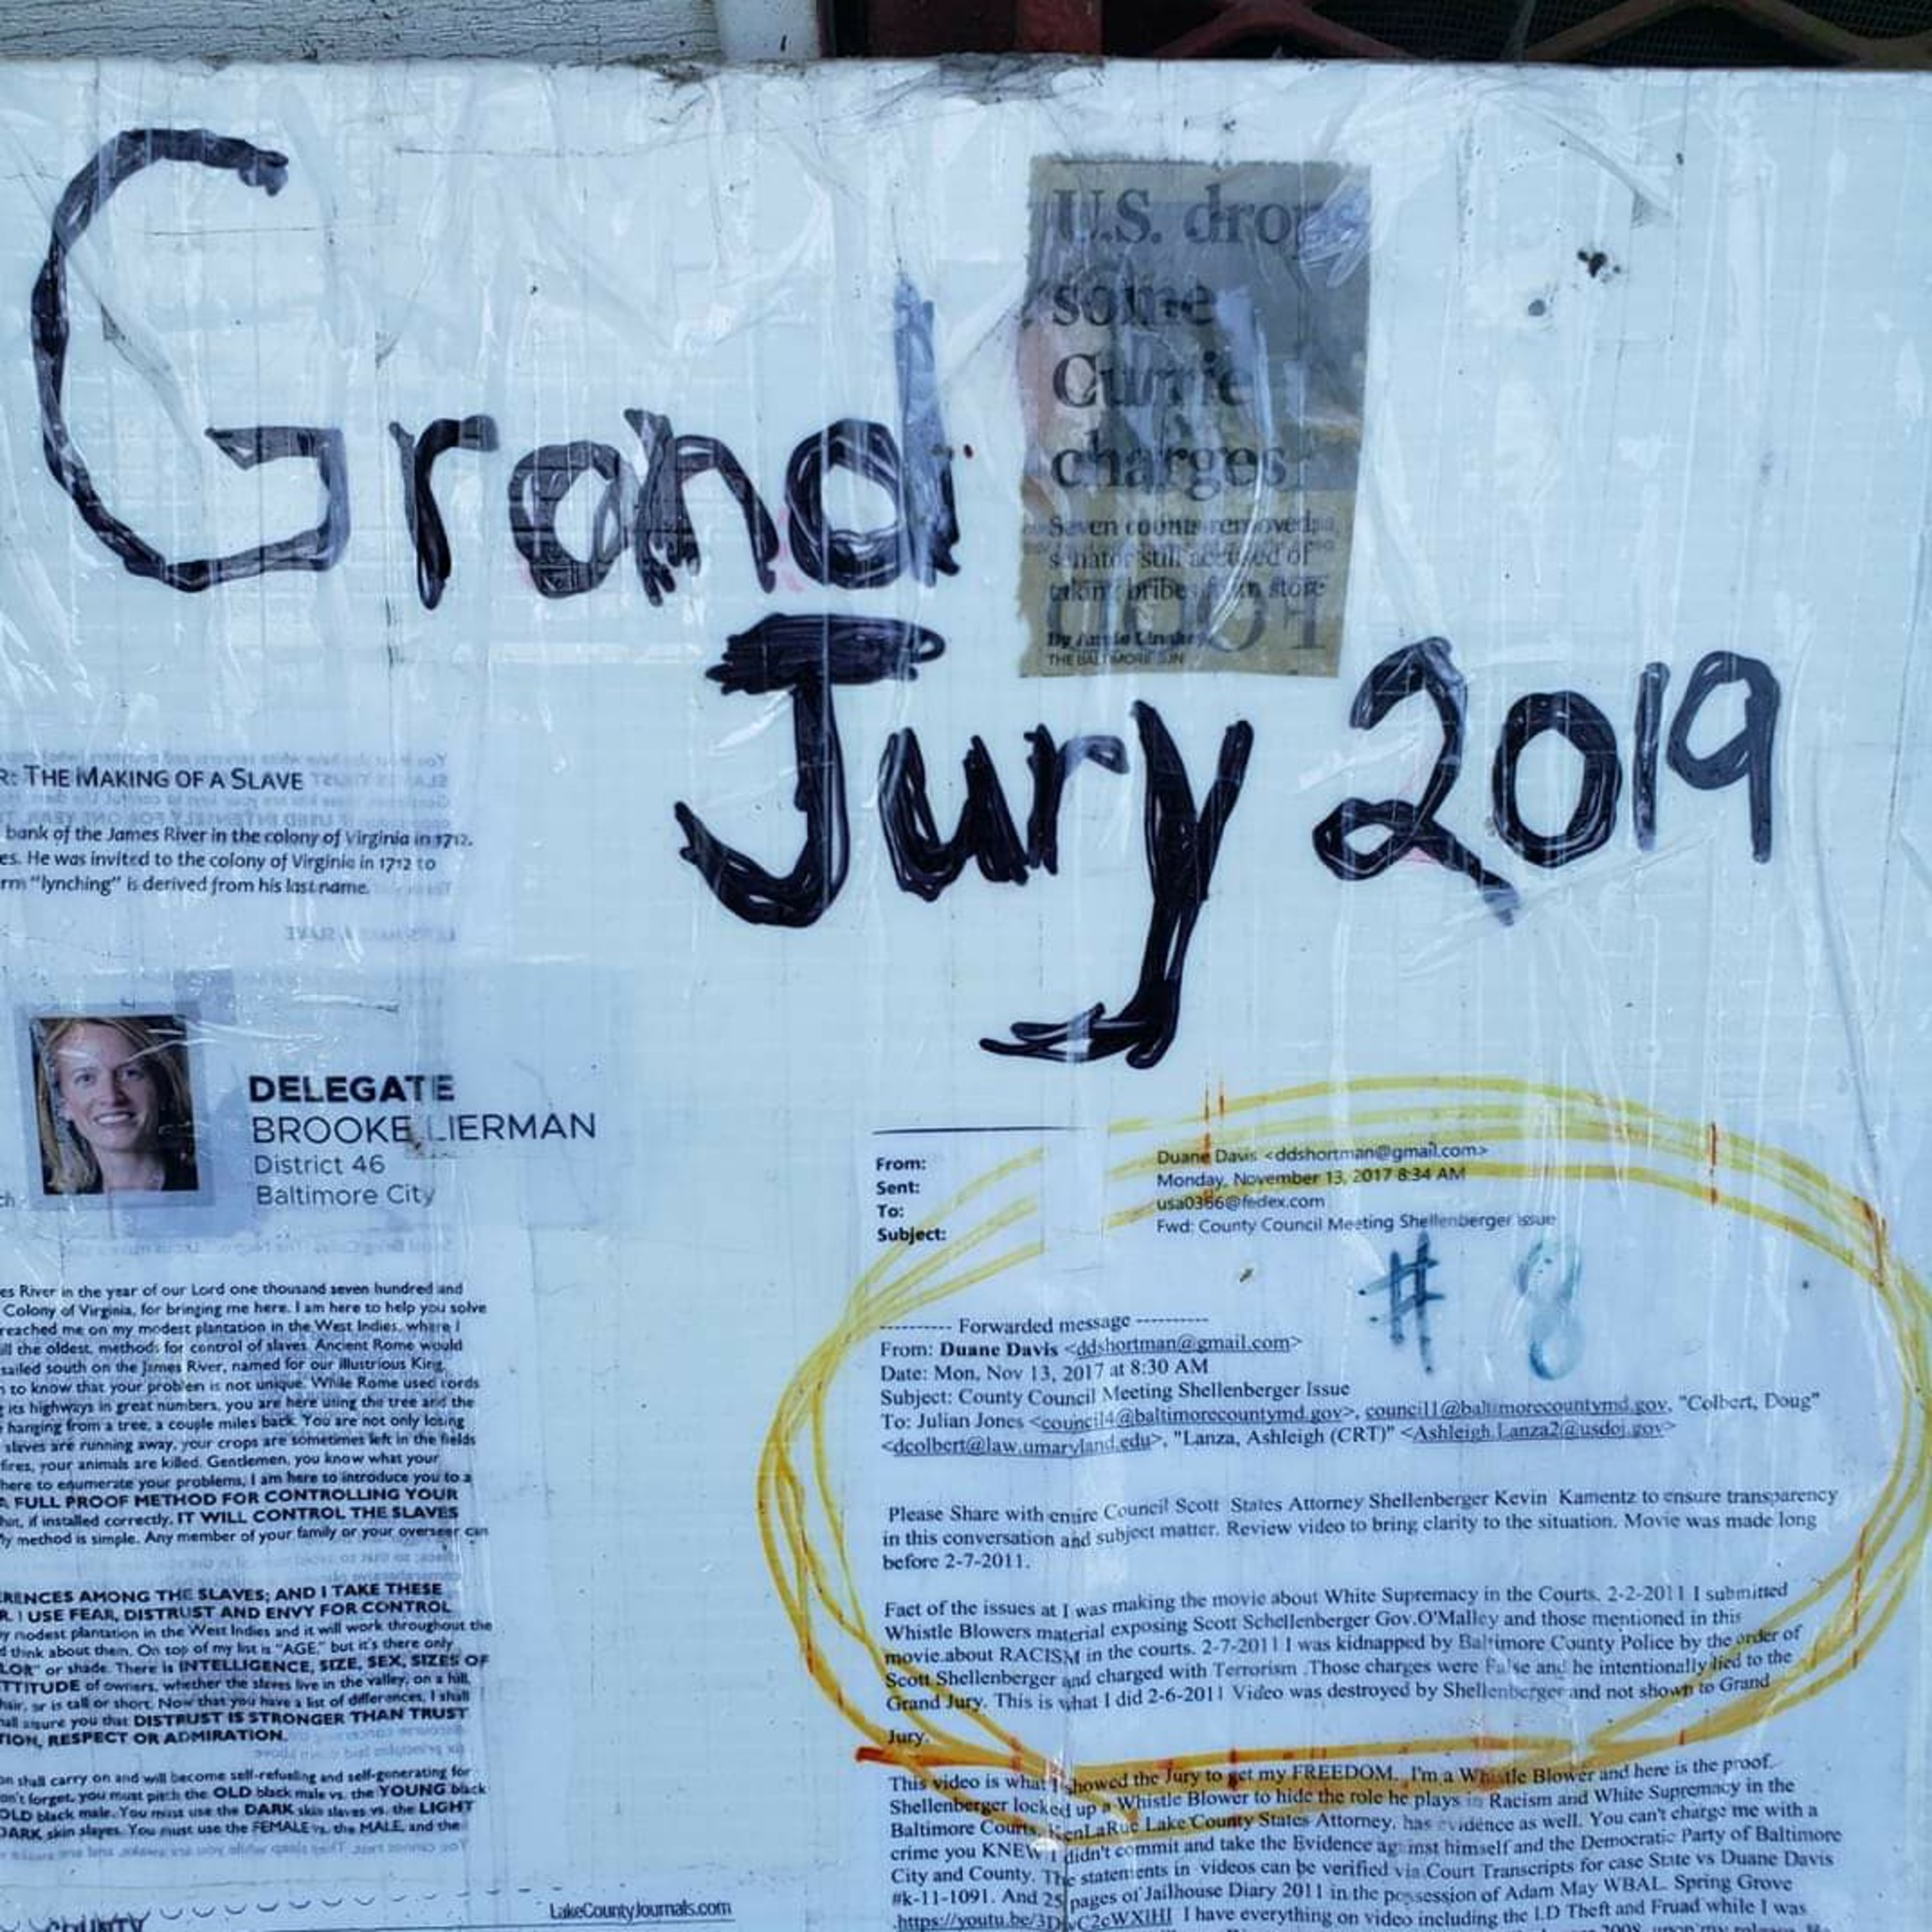 Grand
Jury 2019
U.S. drops
some
Currie
charges
Seven counts removed;
senator still accused of
taking bribes from store
By Annie Linskey
THE BALTIMORE SUN
R: THE MAKING OF A SLAVE
bank of the James River in the colony of Virginia in 1712.
es. He was invited to the colony of Virginia in 1712 to
rm "lynching" is derived from his last name.
DELEGATE
BROOKE LIERMAN
District 46
Baltimore City
ch
es River in the year of our Lord one thousand seven hundred and
Colony of Virginia, for bringing me here. I am here to help you solve
reached me on my modest plantation in the West Indies, where I
ill the oldest, methods for control of slaves. Ancient Rome would
sailed south on the James River, named for our illustrious King,
to know that your problem is not unique. While Rome used cords
its highways in great numbers, you are here using the tree and the
hanging from a tree, a couple miles back. You are not only losing
slaves are running away, your crops are sometimes left in the fields
fires, your animals are killed. Gentlemen, you know what your
here to enumerate your problems, I am here to introduce you to a
A FULL PROOF METHOD FOR CONTROLLING YOUR
hat, if installed correctly, IT WILL CONTROL THE SLAVES
My method is simple. Any member of your family or your overseer can
RENCES AMONG THE SLAVES; AND I TAKE THESE
R. I USE FEAR, DISTRUST AND ENVY FOR CONTROL
y modest plantation in the West Indies and it will work throughout the
d think about them. On top of my list is "AGE," but it's there only
LOR" or shade. There is INTELLIGENCE, SIZE, SEX, SIZES OF
TTITUDE of owners, whether the slaves live in the valley, on a hill,
hair, or is tall or short. Now that you have a list of differences, I shall
hall assure you that DISTRUST IS STRONGER THAN TRUST
TION, RESPECT OR ADMIRATION.
on shall carry on and will become self-refueling and self-generating for
on't forget, you must pitch the OLD black male vs. the YOUNG black
OLD black male. You must use the DARK skin slaves vs. the LIGHT
DARK skin slaves. You must use the FEMALE vs. the MALE, and the
COUNTY
LakeCountyJournals.com
From: Duane Davis <ddshortman@gmail.com>
Sent: Monday, November 13, 2017 8:34 AM
To: usa0366@fedex.com
Subject: Fwd: County Council Meeting Shellenberger Issue
# 8
---------- Forwarded message ----------
From: Duane Davis <ddshortman@gmail.com>
Date: Mon, Nov 13, 2017 at 8:30 AM
Subject: County Council Meeting Shellenberger Issue
To: Julian Jones <council4@baltimorecountymd.gov>, council1@baltimorecountymd.gov, "Colbert, Doug"
<dcolbert@law.umaryland.edu>, "Lanza, Ashleigh (CRT)" <Ashleigh.Lanza2@usdoj.gov>
Please Share with entire Council Scott States Attorney Shellenberger Kevin Kamentz to ensure transparency
in this conversation and subject matter. Review video to bring clarity to the situation. Movie was made long
before 2-7-2011.
Fact of the issues at I was making the movie about White Supremacy in the Courts. 2-2-2011 I submitted
Whistle Blowers material exposing Scott Schellenberger Gov.O'Malley and those mentioned in this
movie.about RACISM in the courts. 2-7-2011 I was kidnapped by Baltimore County Police by the order of
Scott Shellenberger and charged with Terrorism .Those charges were False and he intentionally lied to the
Grand Jury. This is what I did 2-6-2011 Video was destroyed by Shellenberger and not shown to Grand
Jury.
This video is what I showed the Jury to get my FREEDOM. I'm a Whistle Blower and here is the proof.
Shellenberger locked up a Whistle Blower to hide the role he plays in Racism and White Supremacy in the
Baltimore Courts. KenLaRue Lake County States Attorney, has evidence as well. You can't charge me with a
crime you KNEW I didn't commit and take the Evidence against himself and the Democratic Party of Baltimore
City and County. The statements in videos can be verified via Court Transcripts for case State vs Duane Davis
#k-11-1091. And 25 pages of Jailhouse Diary 2011 in the possession of Adam May WBAL. Spring Grove
I have everything on video including the I.D Theft and Fruad while I was